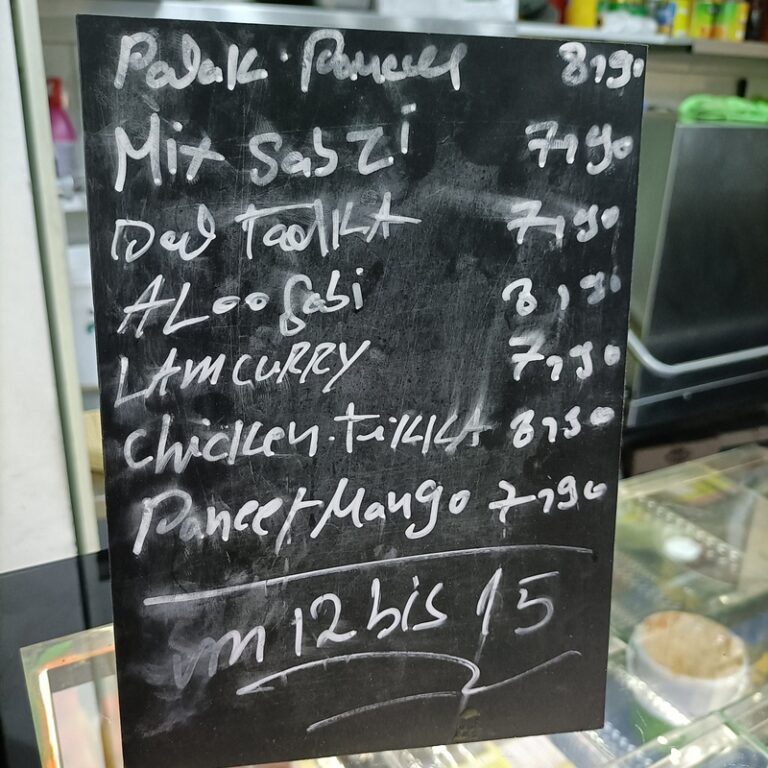 Palak Paneer 8,90
Mix Sabzi 7,90
Dal TadKA 7,90
ALoo Gobi 8,90
LAMCURRY 7,90
Chicken TiKKA 8,50
Paneer Mango 7,90
um 12 bis 15